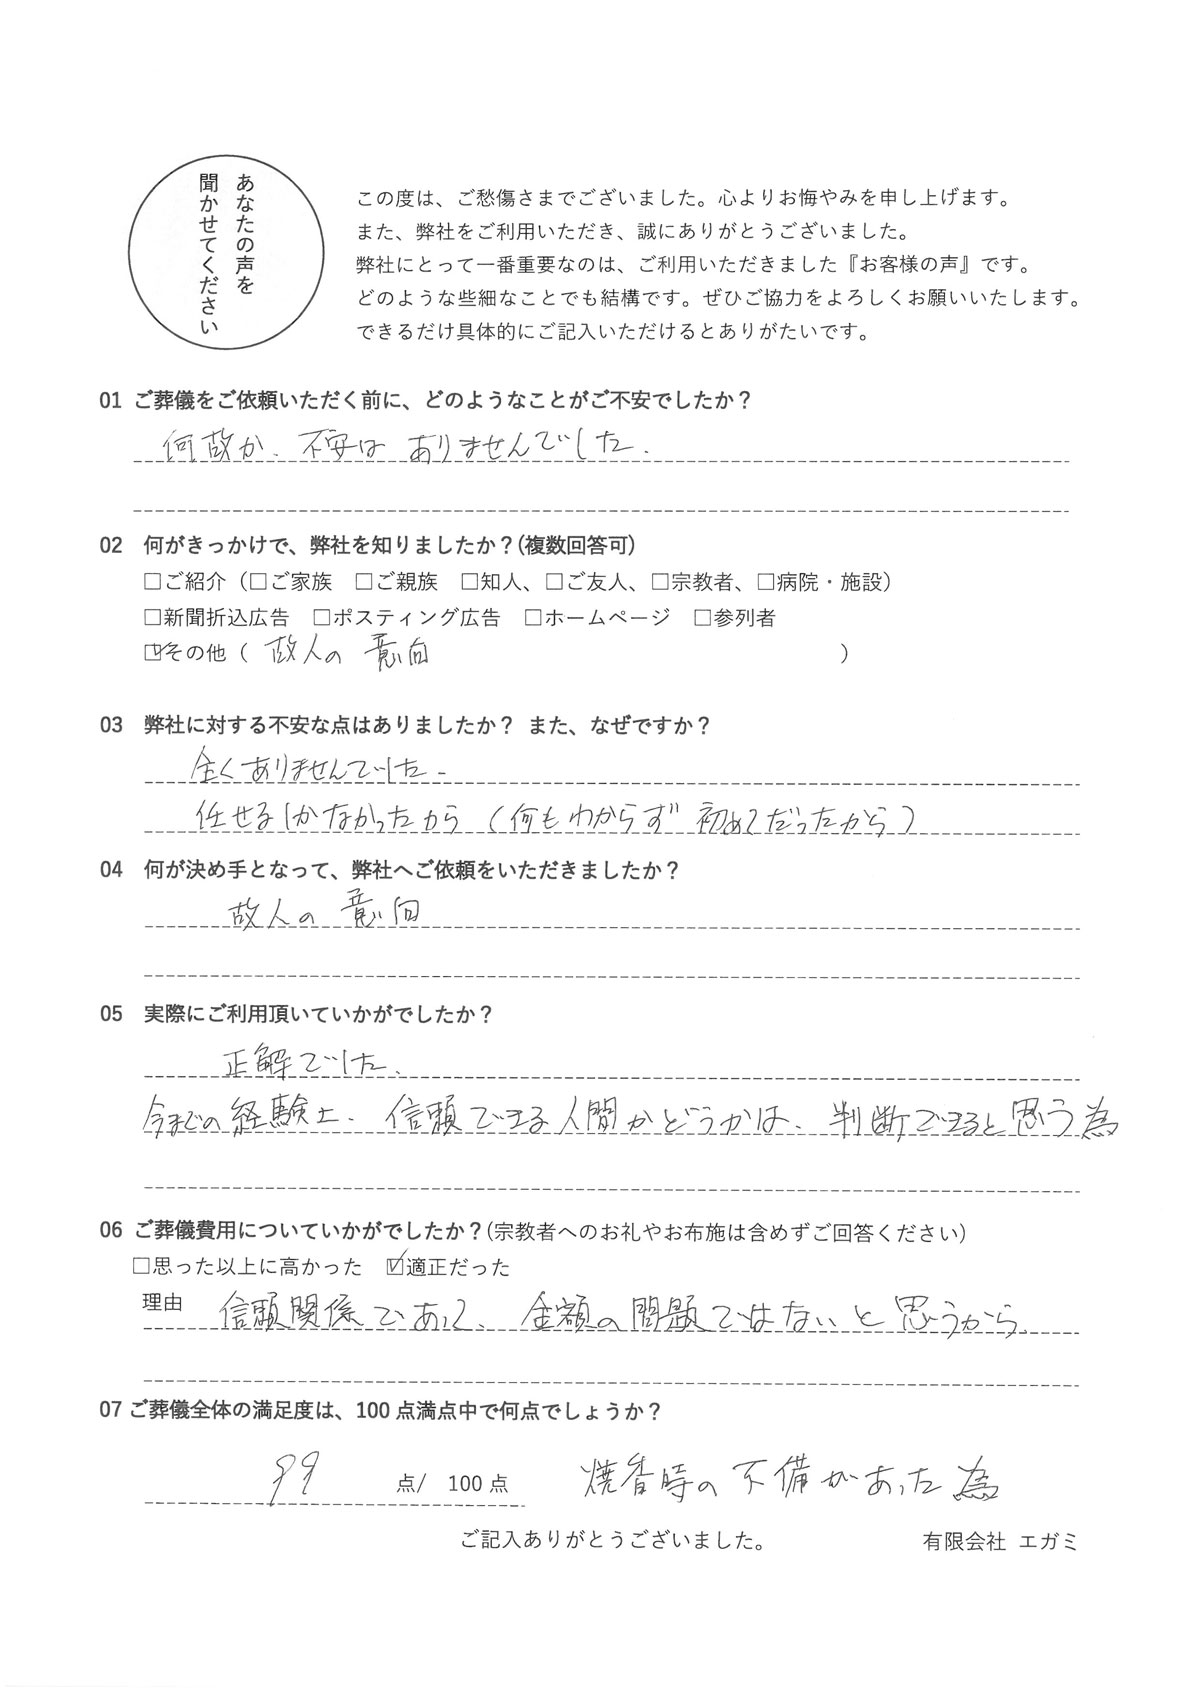 あなたの声を
聞かせてください
この度は、ご愁傷さまでございました。心よりお悔やみを申し上げます。
また、弊社をご利用いただき、誠にありがとうございました。
弊社にとって一番重要なのは、ご利用いただきました『お客様の声』です。
どのような些細なことでも結構です。ぜひご協力をよろしくお願いいたします。
できるだけ具体的にご記入いただけるとありがたいです。
01 ご葬儀をご依頼いただく前に、どのようなことがご不安でしたか？
何故か、不安はありませんでした.
02 何がきっかけで、弊社を知りましたか？(複数回答可)
□ご紹介（□ご家族 □ご親族 □知人、□ご友人、□宗教者、□病院・施設）
□新聞折込広告 □ポスティング広告 □ホームページ □参列者
☑その他（ 故人の意向 ）
03 弊社に対する不安な点はありましたか？ また、なぜですか？
全くありませんでした.
任せるしかなかったから（何もわからず 初めてだったから）
04 何が決め手となって、弊社へご依頼をいただきましたか？
故人の意向
05 実際にご利用頂いていかがでしたか？
正解でした.
今までの経験上、信頼できる人間かどうかは、判断できると思う為
06 ご葬儀費用についていかがでしたか？(宗教者へのお礼やお布施は含めずご回答ください)
□思った以上に高かった ☑適正だった
理由 信頼関係であって、金額の問題ではないと思うから.
07 ご葬儀全体の満足度は、100 点満点中で何点でしょうか？
99 点/ 100 点 焼香時の不備があった為
ご記入ありがとうございました。 有限会社 エガミ